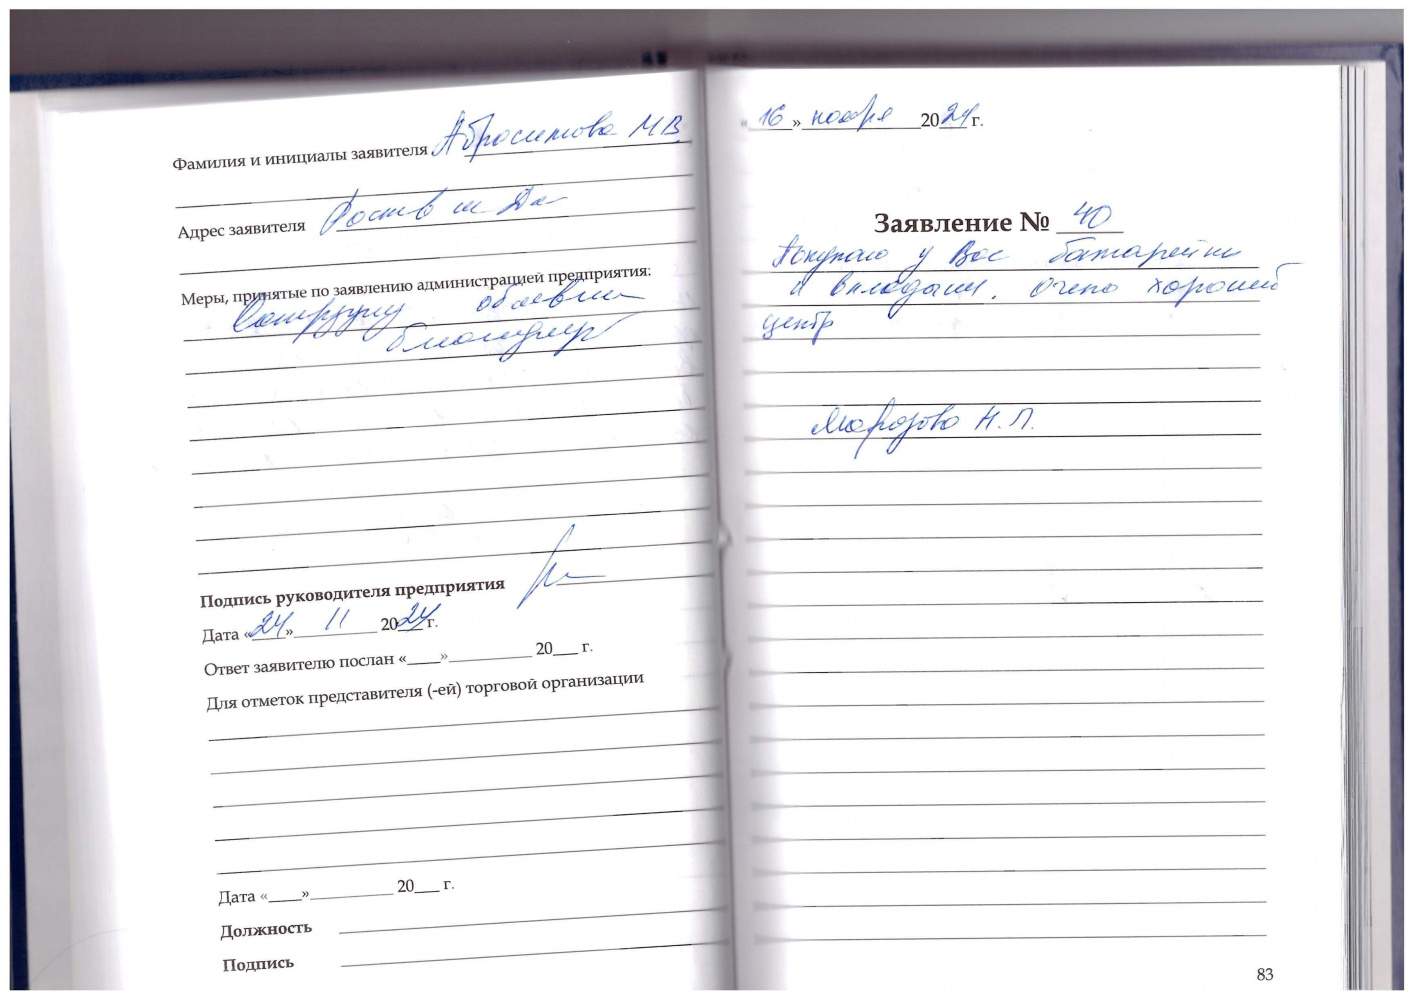 Фамилия и инициалы заявителя Абросимова М В
Адрес заявителя Ростов н Да
Меры, принятые по заявлению администрацией предприятия:
Сотруднику объявлена
благодар
Подпись руководителя предприятия
Дата «24» 11 2024 г.
Ответ заявителю послан «____»__________ 20___ г.
Для отметок представителя (-ей) торговой организации
Дата «____»__________ 20___ г.
Должность
Подпись
«16» ноября 2024 г.
Заявление № 40
Покупаю у Вас батарейки
и вкладыши. Очень хороший
центр
Морозова Н. П.
83